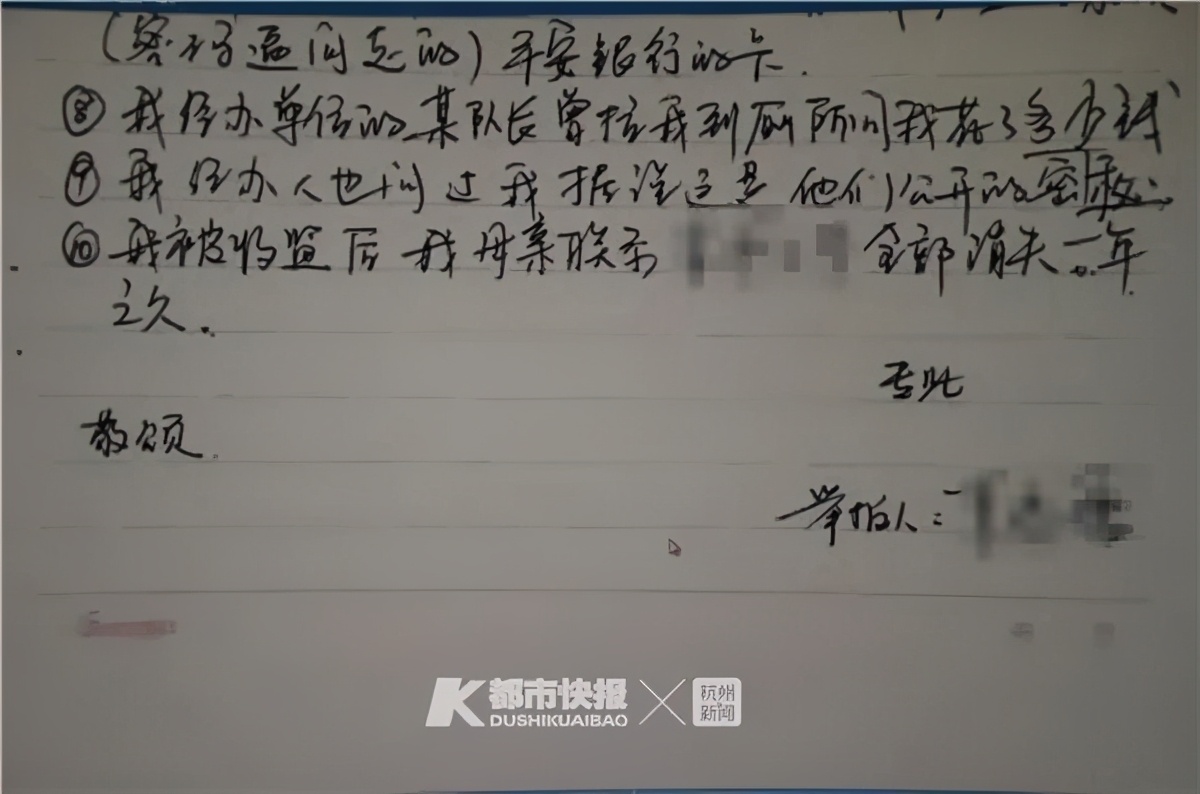 (密码逼问走的) 平安银行的卡.
⑧ 我经办单位的某队长曾拉我到厕所问我花了多少钱
⑨ 我经办人也问过我 据说这是他们公开的密教.
⑩ 我被收监后 我母亲联系 全部消失一年
之久.
专此
敬颂.
举报人:
都市快报
DUSHIKUAIBAO
杭州
新闻